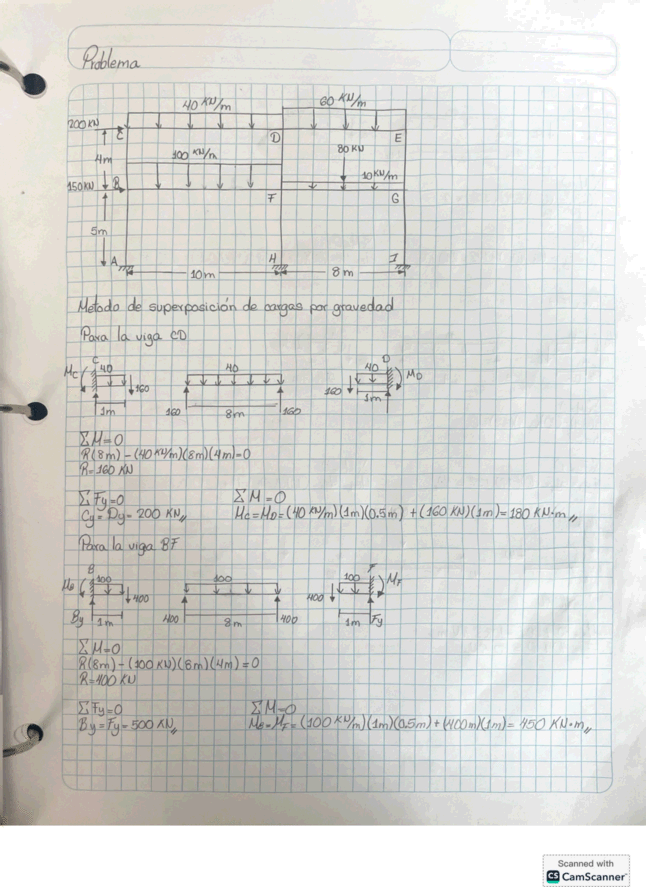 Problema
40 KN/m
60 KN/m
200 KN
C
D
E
4m
100 KN/m
80 KN
10 KN/m
150KN
B
F
G
5m
A
H
I
10m
8m
Metodo de superposición de cargas por gravedad
Para la viga CD
C
D
Mc
40
40
40
MD
160
160
160
160
1m
8m
1m
ΣM=0
R(8m) - (40 KN/m)(8m)(4m)=0
R=160 KN
ΣFy=0
ΣM=0
Cy=Dy= 200 KN,,
Mc=MD=(40 KN/m)(1m)(0.5m) + (160 KN)(1m)=180 KN·m,,
Para la viga BF
B
F
MB
100
100
100
MF
400
400
400
400
By
1m
8m
1m
Fy
ΣM=0
R(8m) - (100 KN)(8m)(4m)=0
R=400 KN
ΣFy=0
ΣM=0
By=Fy=500 KN,,
MB=MF=(100 KN/m)(1m)(0.5m)+(400m)(1m)= 450 KN·m,,
Scanned with
CS CamScanner